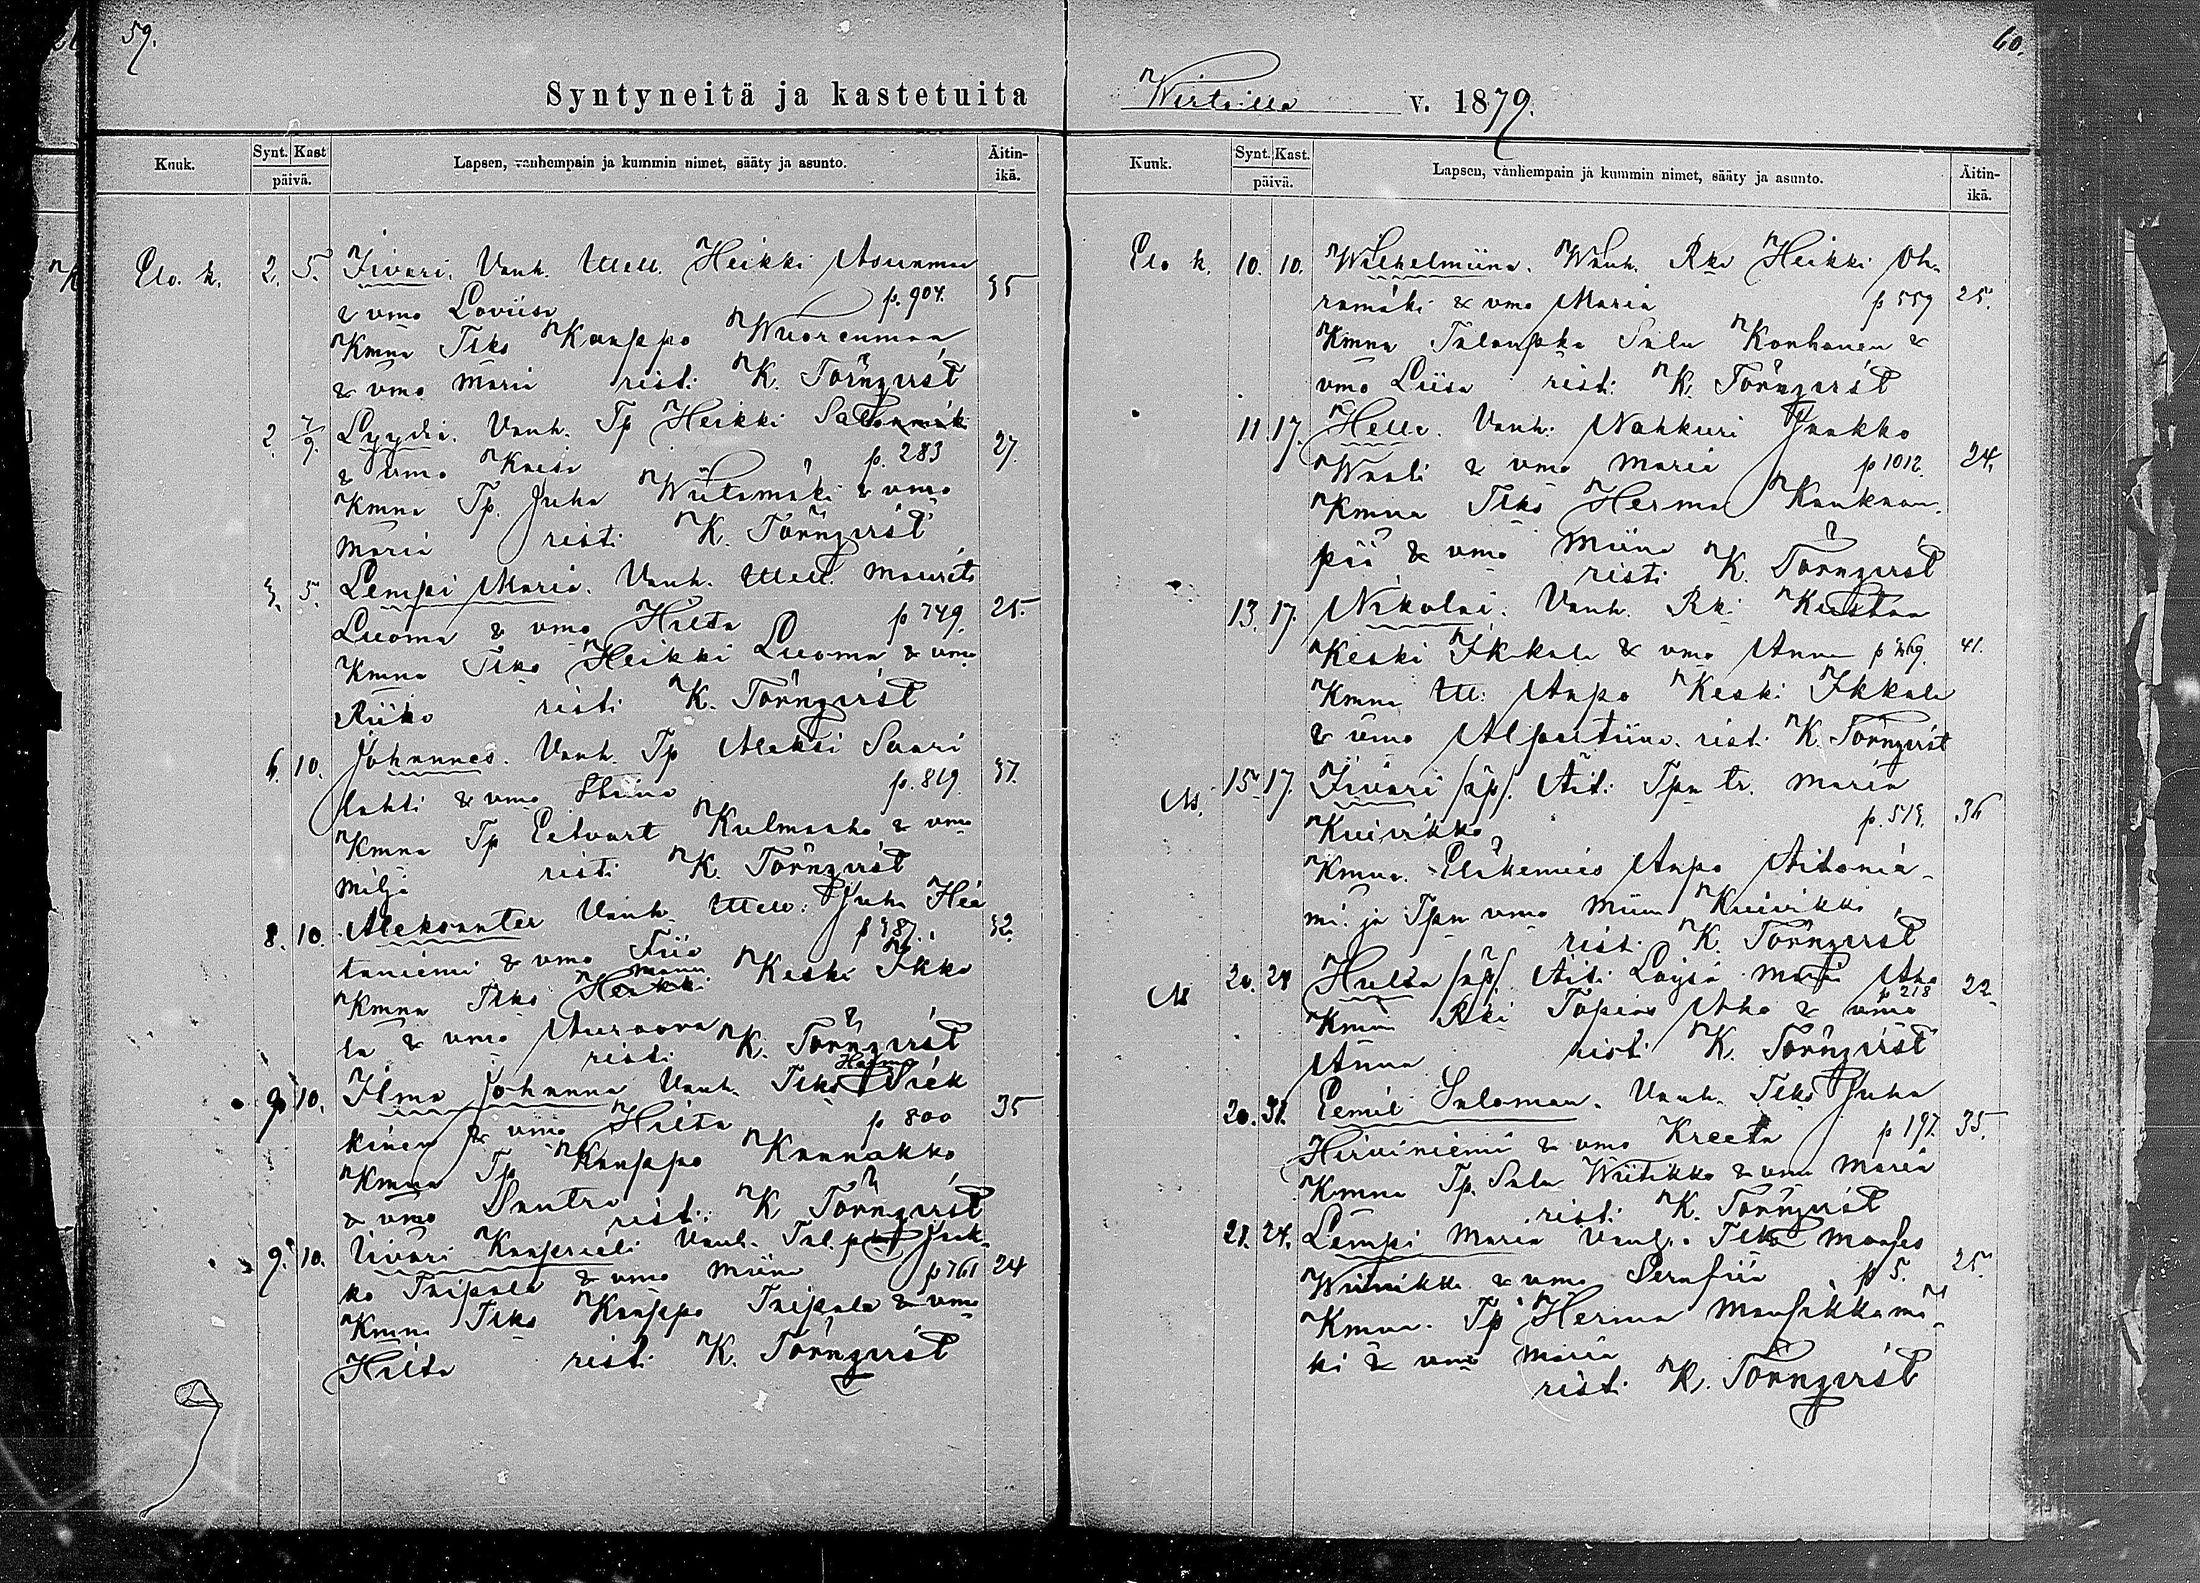 59.
Syntyneitä ja kastetuita
Kuuk.
Synt. Kast
päivä.
Lapsen, vanhempain ja kummin nimet, sääty ja asunto.
Äitin-
ikä.
Elo. k. 2. 5. Iivari. Vanh. Heikki Asunmaa
& vmo Loviisa p. 904. 35
Kmna Tlks Kaappo Wuorenmaa
& vmo Maria risti K. Törnqvist
2. 7/9. Lyydia. Vanh. Tp Heikki 27.
& vmo Kaisa p. 283
Kmna Tp. Juha Wiitamäki & vmo
Maria risti K. Törnqvist
3. 5. Lempi Maria. Vanh. Maurits
Luoma & vmo Hilta p 749. 25
Kmna Tlks Heikki Luoma & vmo
Riika risti K. Törnqvist
6. 10. Johannes. Vanh. Tp. Aleksi Saari
lahti & vmo Stiina p. 819. 37.
Kmna Tp Eetvart Kulmaaho & vmo
Milja risti K. Törnqvist
8. 10. Aleksanter Vanh. Juha Hie
taniemi & vmo Fiia p 387. 32.
Kmna Tlks Manu Keski Ikka
la & vmo Auroora
risti K. Törnqvist
9. 10. Ilma Johanna Vanh. Tlks Herma Siek
kinen & vmo Hilta p 800 35
Kmna Tp Kaappo Kannakko
& vmo Santra risti K Törnqvist
9. 10. Iivari Kaaprieli Vanh. Jaak-
ko Taipale & vmo Miina p 761 24
Kmna Tlks Kaappo Taipale & vmo
Hilta risti K. Törnqvist
60.
Wirtailla v. 1879.
Kuuk.
Synt. Kast.
päivä.
Lapsen, vanhempain ja kummin nimet, sääty ja asunto.
Äitin-
ikä.
Elo k. 10. 10. Wilhelmiina. Wanh. Rki Heikki Oh-
ramäki & vmo Maria p 559 25.
Kmna Salu Konhanen &
vmo Liisa risti K. Törnqvist
11. 17. Hella. Vanh. Nahkuri Jaakko
Waali & vmo Maria p 1012. 24.
Kmna Tlks Herma Kankaan-
pää & vmo Miina
risti K. Törnqvist
13. 17. Nikolai. Vanh. Rki Kustaa
Keski Ikkala & vmo Anna p 469. 41.
Kmna Aapo Keski Ikkala
& vmo Alpertiina. risti K. Törnqvist
15 17. Iivari /äp/. Äiti Tpn tr. Maria
Kuivikko p. 519. 36
Kmna. Eläkemies Aapo Aitonie-
mi ja Tpn vmo Miina Kuivikko
risti K. Törnqvist
20. 24 Hulta /äp/. Äiti Löysä Maria Aho
p 218 22.
Kmna Rki Topias Aho & vmo
Anna risti K. Törnqvist
20. 31. Eemil Salomon. Vanh. Tlks Juha
Hirviniemi & vmo Kreeta p 197. 35.
Kmna Tp. Salu Wiitikko & vmo Maria
risti K. Törnqvist
21. 24. Lempi Maria Vanh. Tlks Manses
& vmo Serafiia p 5. 25.
Kmna. Tp Herma Mansikkamä
ki & vmo Maria
risti K. Törnqvist